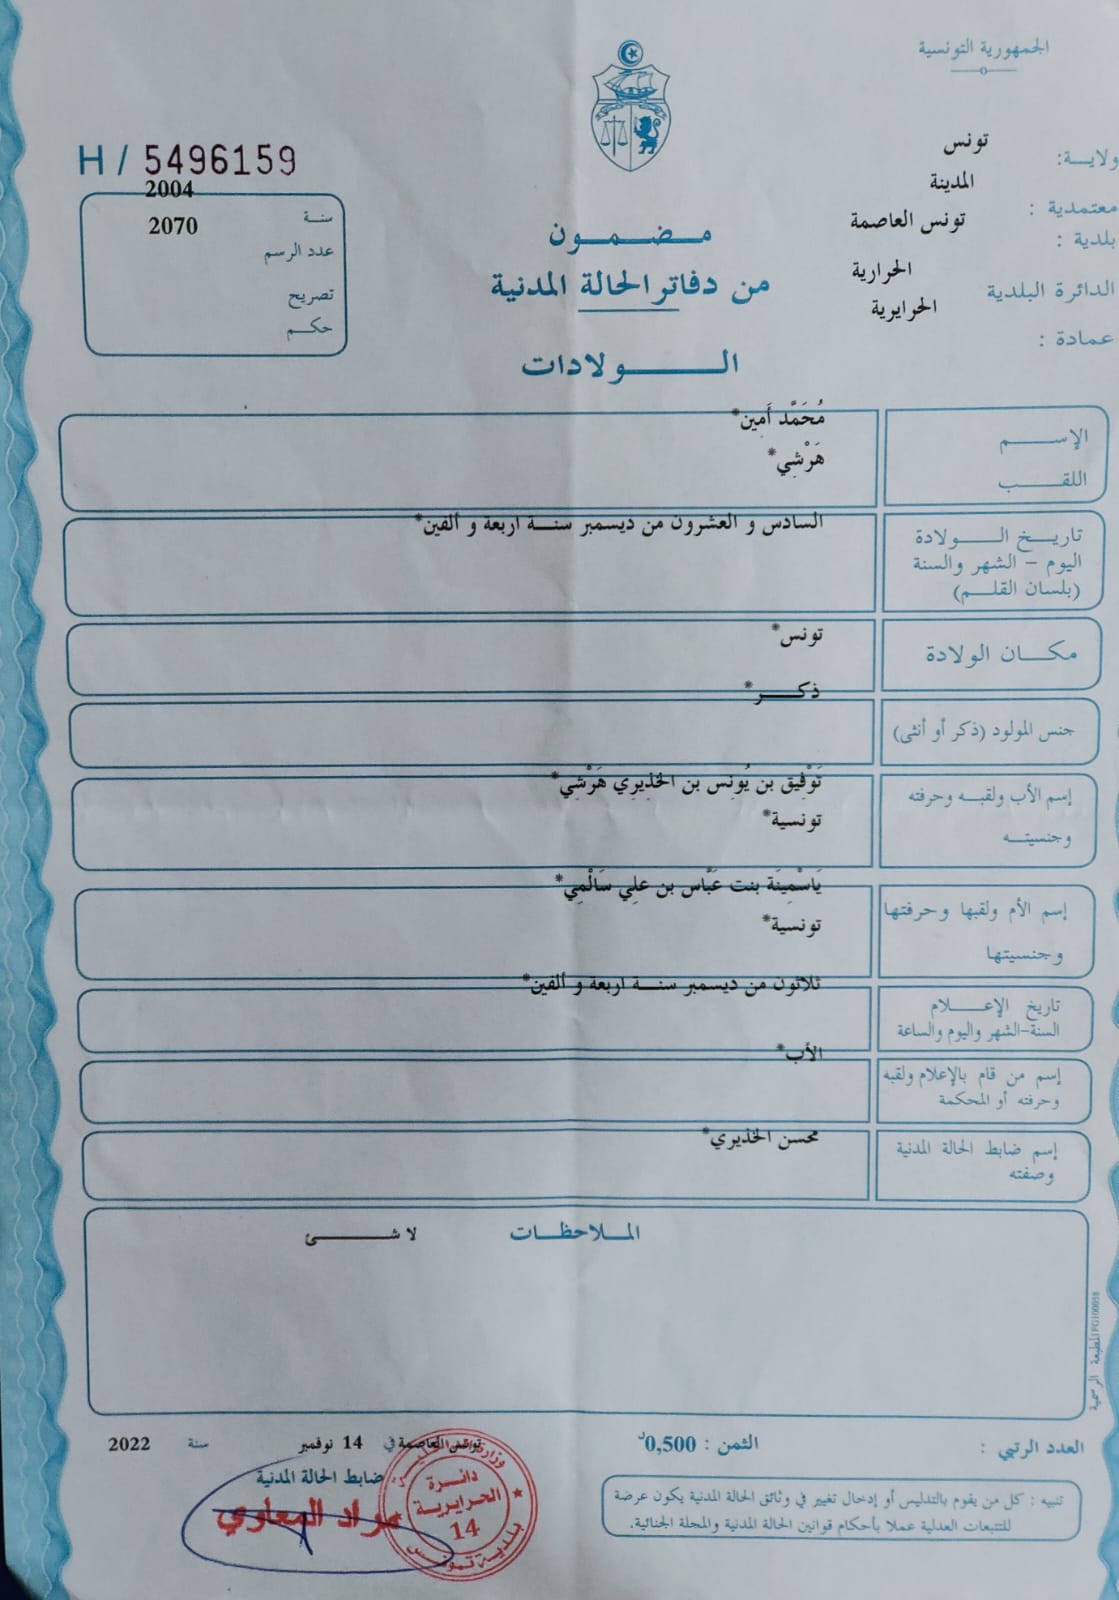 الجمهورية التونسية
ولايـــة: تونس
معتمدية : المدينة
بلدية : تونس العاصمة
الدائرة البلدية الحرارية
عمادة : الحرايرية
H / 5496159
سنـة 2004
عدد الرسم 2070
تصريح
حكـم
مـضـمـون
من دفاتر الحالة المدنية
الـــولادات
الإســـم مُحَمَّد أَمِين*
اللقـــب هَرْشِي*
تاريـخ الـــولادة السادس و العشرون من ديسمبر سنة اربعة و ألفين*
اليوم – الشهر والسنة
(بلسان القلـم)
مكـان الولادة تونس*
جنس المولود (ذكر أو أنثى) ذكـر*
إسم الأب ولقبـه وحرفته تَوْفِيق بن يُونِس بن الخذِيرِي هَرْشِي*
وجنسيتـه تونسية*
إسم الأم ولقبها وحرفتها يَاسْمِينَة بنت عَبَّاس بن علِي سَالْمِي*
وجنسيتها تونسية*
تاريخ الإعـــلام ثلاثون من ديسمبر سنة اربعة و ألفين*
السنة-الشهر واليوم والساعة
إسم من قام بالإعلام ولقبه الأب*
وحرفته أو المحكمة
إسم ضابط الحالة المدنية محسن الخذيري*
وصفته
الملاحظـات لا شـــئ
المطبعة الرسمية
العدد الرتبي : الثمن : 0,500د
تونس العاصمة في 14 نوفمبر سنة 2022
ضابط الحالة المدنية
مراد المعاوي
دائرة
الحرايرية
14
بلدية تونس
تنبيه : كل من يقوم بالتدليس أو إدخال تغيير في وثائق الحالة المدنية يكون عرضة
للتتبعات العدلية عملا بأحكام قوانين الحالة المدنية والمجلة الجنائية.